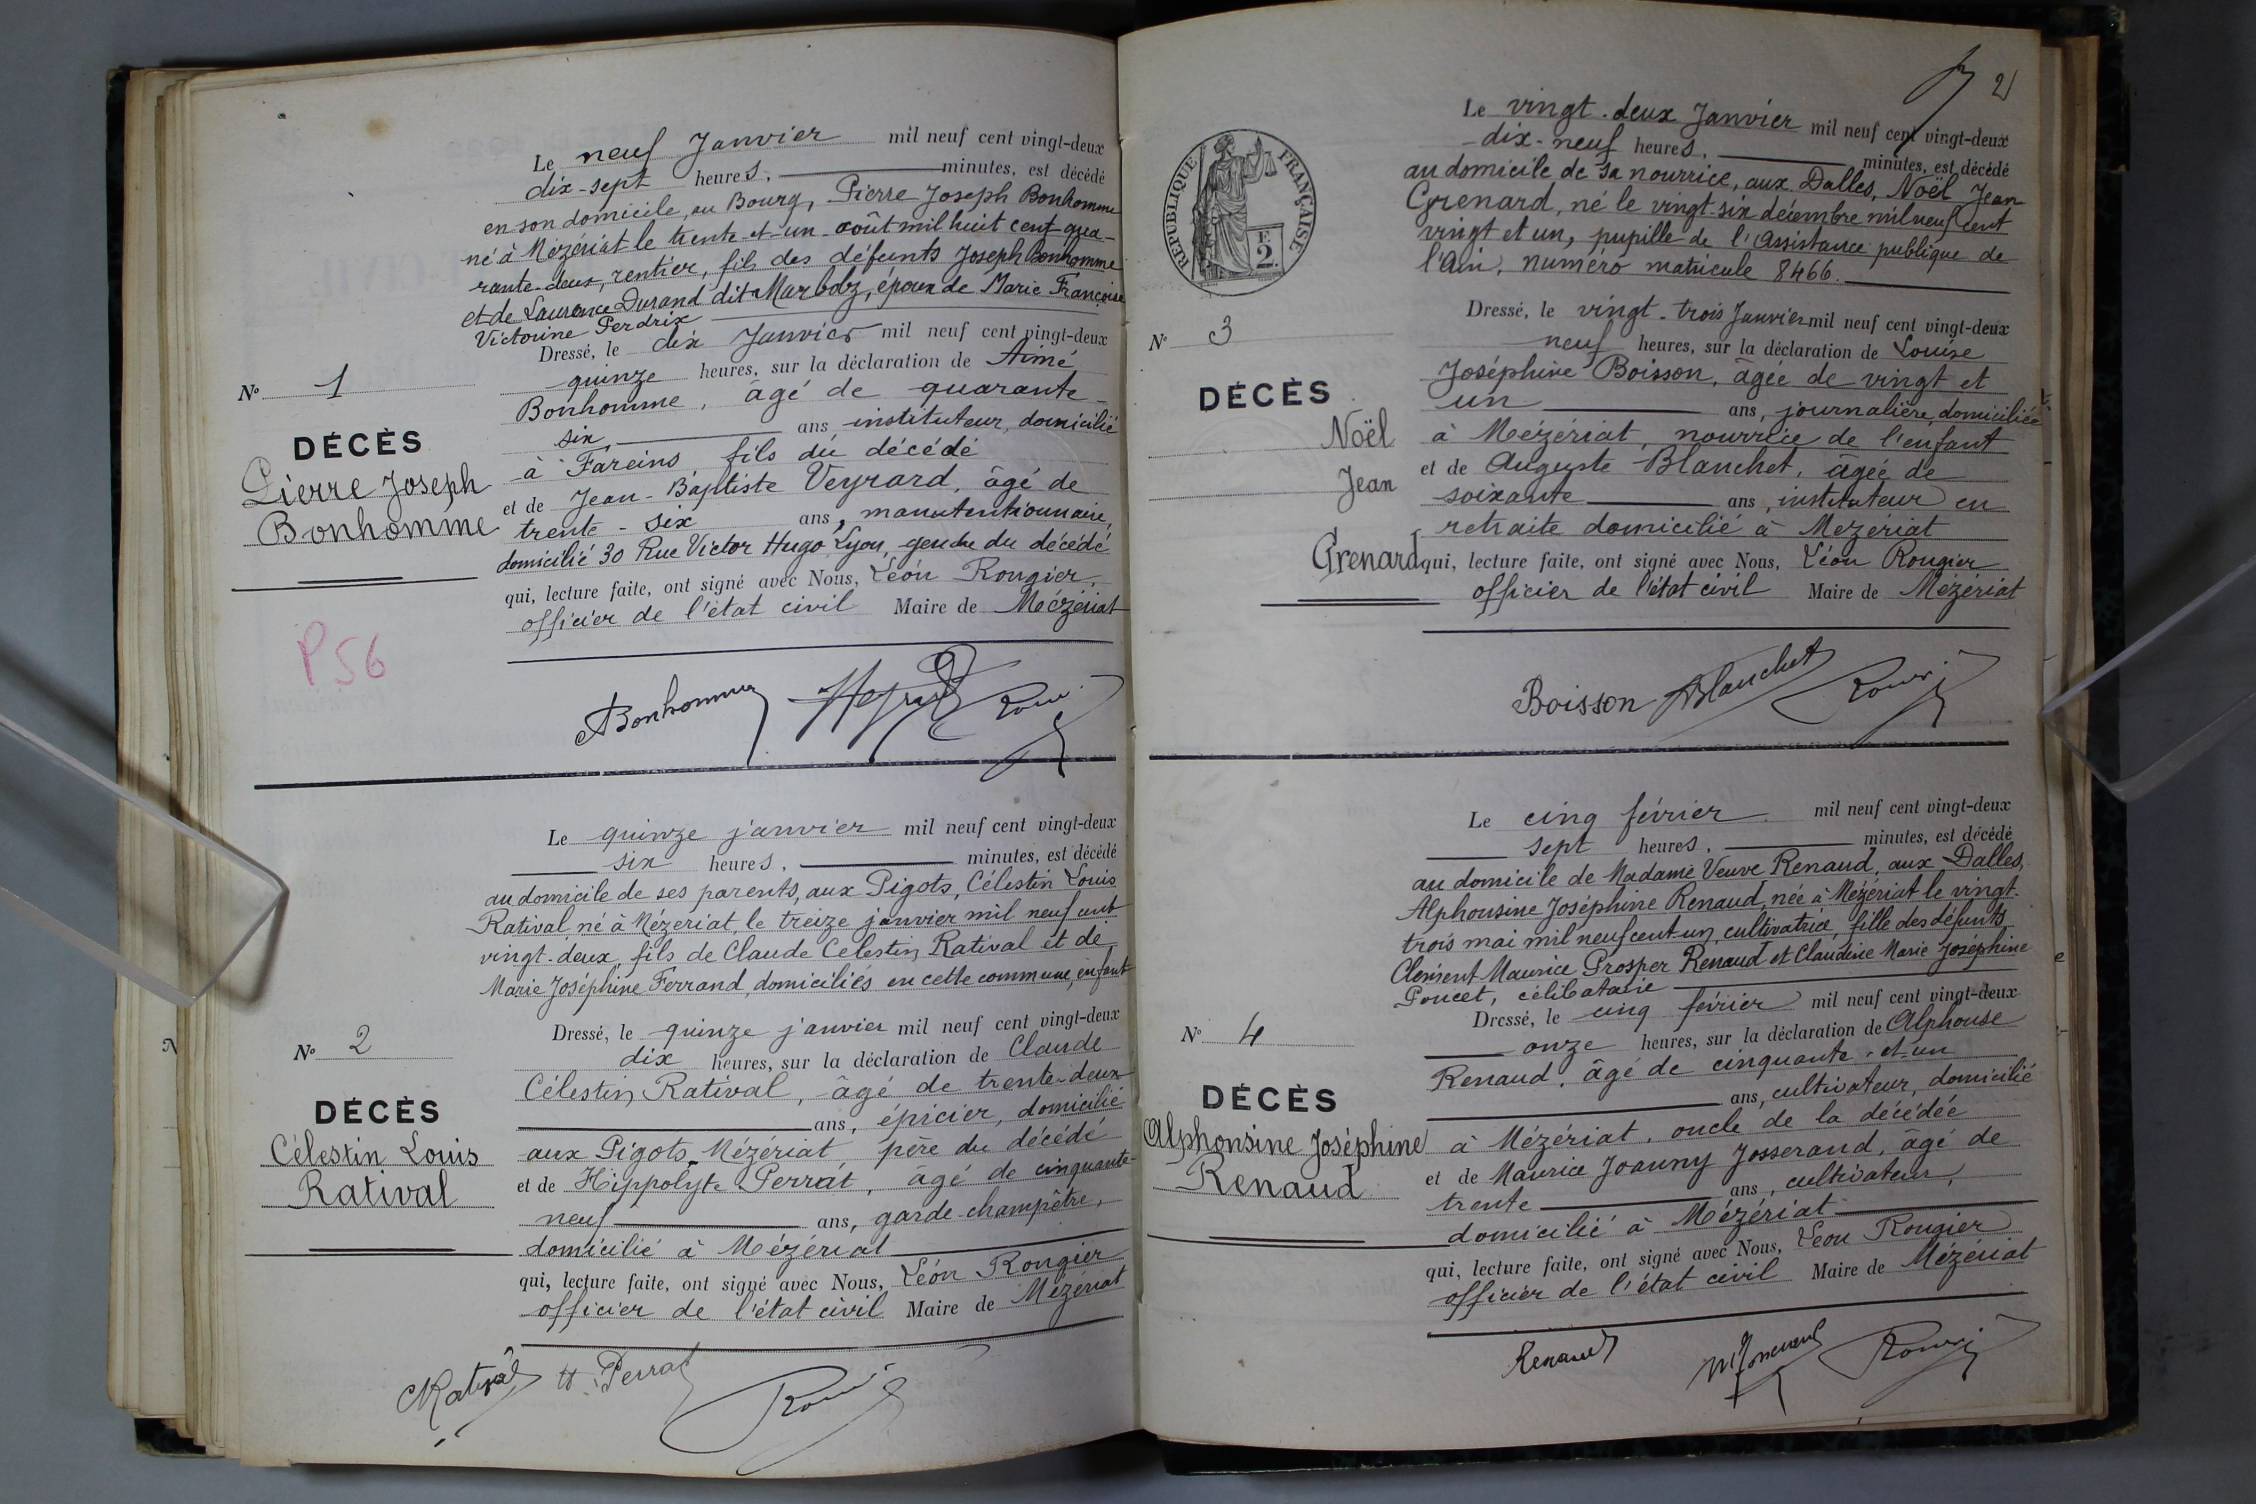 Le neuf Janvier mil neuf cent vingt-deux
dix-sept heures, minutes, est décédé
en son domicile, au Bourg, Pierre Joseph Bonhomme
né à Mézériat le trente-et-un août mil huit cent qua-
rante-deux, rentier, fils des défunts Joseph Bonhomme
et de Laurence Durand dit Marbbz, époux de Marie Françoise
Victorine Perdrix
Dressé, le dix Janvier mil neuf cent vingt-deux
quinze heures, sur la déclaration de Aimé
Nº 1
Bonhomme, âgé de quarante-
six ans instituteur, domicilié
DÉCÈS
à Fareins fils du décédé
Pierre Joseph
et de Jean-Baptiste Veyrard, âgé de
Bonhomme
trente-six ans, manutentionnaire,
domicilié 30 Rue Victor Hugo Lyon, gendre du décédé
qui, lecture faite, ont signé avec Nous, Léon Rougier,
officier de l'état civil Maire de Mézériat
P56
ABonhomme
Le quinze janvier mil neuf cent vingt-deux
six heures, minutes, est décédé
au domicile de ses parents, aux Pigots, Célestin Louis
Ratival, né à Mézériat, le treize janvier mil neuf cent
vingt-deux, fils de Claude Célestin Ratival et de
Marie Joséphine Ferrand, domiciliés en cette commune, enfant
Dressé, le quinze janvier mil neuf cent vingt-deux
Nº 2
dix heures, sur la déclaration de Claude
Célestin Ratival, âgé de trente-deux
DÉCÈS
ans, épicier, domicilié
Célestin Louis
aux Pigots, Mézériat père du décédé
Ratival
et de Hippolyte Perrat, âgé de cinquante-
neuf ans, garde-champêtre,
domicilié à Mézériat
qui, lecture faite, ont signé avec Nous, Léon Rougier
officier de l'état civil Maire de Mézériat
CRatival H. Perrat
2
Le vingt-deux Janvier mil neuf cent vingt-deux
dix-neuf heures, minutes, est décédé
au domicile de sa nourrice, aux Dalles, Noël Jean
Grenard, né le vingt-six décembre mil neuf cent
vingt et un, pupille de l'Assistance publique de
l'Ain, numéro matricule 8466.
RÉPUBLIQUE FRANÇAISE
F.
2.
Dressé, le vingt-trois Janvier mil neuf cent vingt-deux
Nº 3
neuf heures, sur la déclaration de Louise
Joséphine Boisson, âgée de vingt et
DÉCÈS
un ans, journalière, domiciliée
Noël
à Mézériat, nourrice de l'enfant
et de Auguste Blanchet, âgée de
Jean
soixante ans, instituteur en
retraite domicilié à Mézériat
Grenard
qui, lecture faite, ont signé avec Nous, Léon Rougier
officier de l'état civil Maire de Mézériat
Boisson ABlanchet
Le cinq février mil neuf cent vingt-deux
sept heures, minutes, est décédé
au domicile de Madame Veuve Renaud, aux Dalles,
Alphonsine Joséphine Renaud, née à Mézériat le vingt-
trois mai mil neuf cent un, cultivatrice, fille des défunts
Clément Maurice Prosper Renaud et Claudine Marie Joséphine
Poncet, célibataire
Dressé, le cinq février mil neuf cent vingt-deux
Nº 4
onze heures, sur la déclaration de Alphonse
Renaud, âgé de cinquante-et-un
DÉCÈS
ans, cultivateur, domicilié
Alphonsine Joséphine
à Mézériat, oncle de la décédée
Renaud
et de Maurice Joanny Josserand, âgé de
trente ans, cultivateur,
domicilié à Mézériat
qui, lecture faite, ont signé avec Nous, Léon Rougier
officier de l'état civil Maire de Mézériat
Renaud